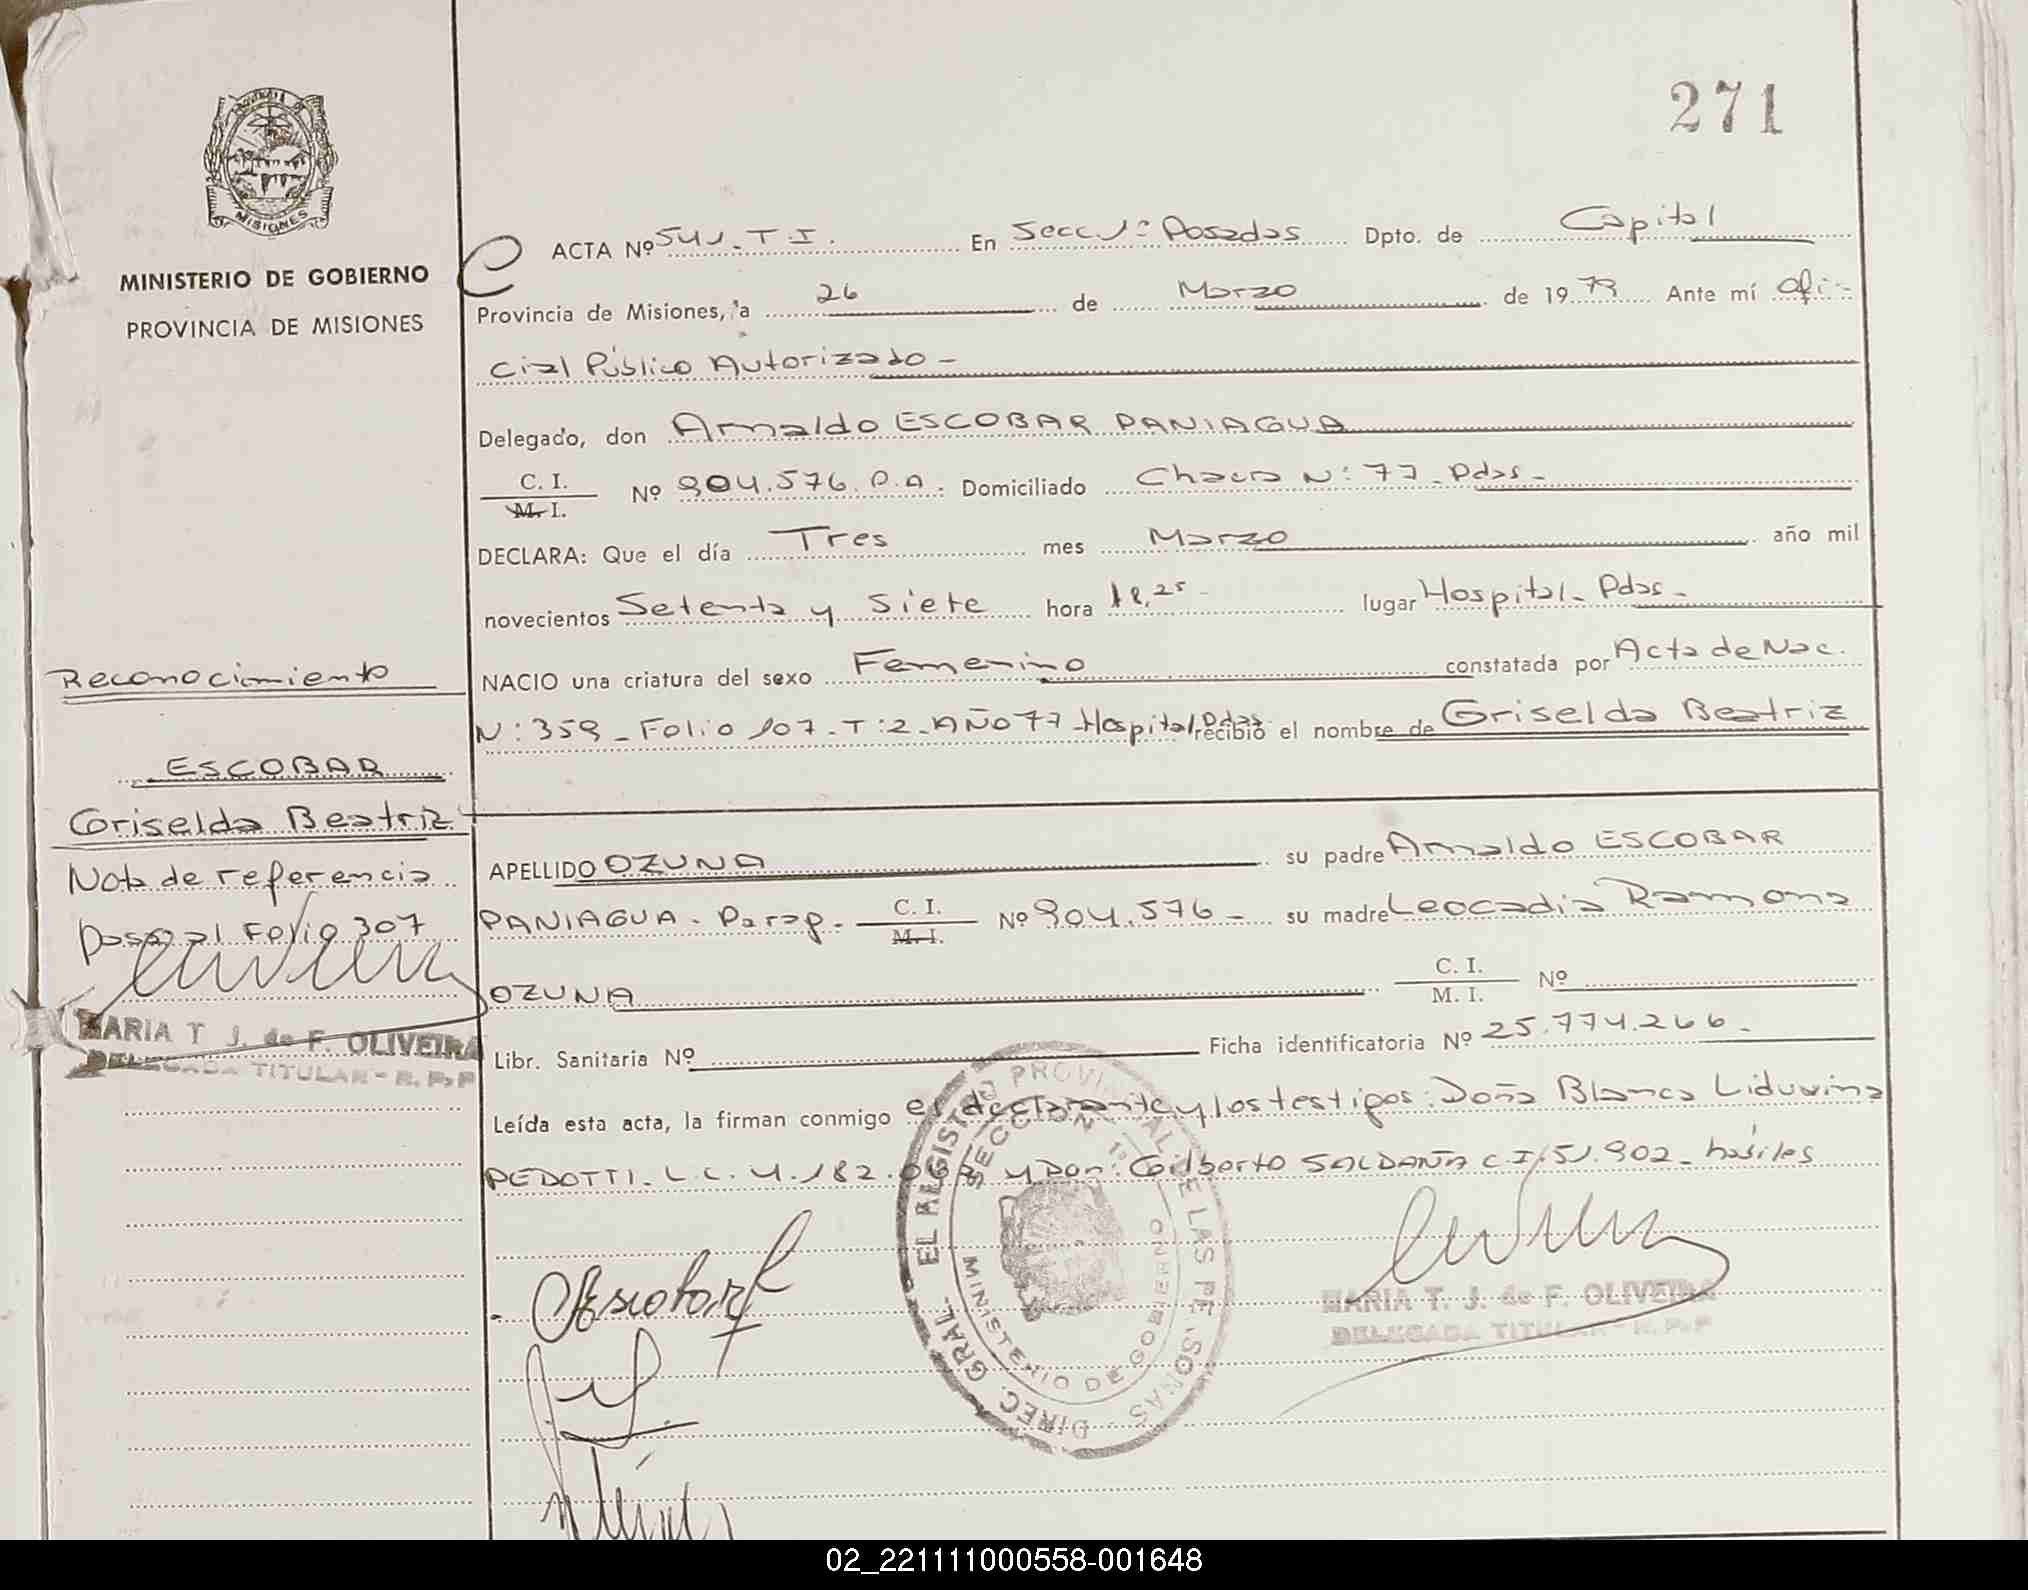 271
MINISTERIO DE GOBIERNO
PROVINCIA DE MISIONES
MISIONES
ACTA Nº 541-T-I. En Secc 1ª Posadas Dpto. de Capital
Provincia de Misiones, a 26 de Marzo de 1979 Ante mí Ofi-
cial Público Autorizado -
Delegado, don Arnaldo ESCOBAR PANIAGUA
C. I.
M. I. Nº 904.576. P.A. Domiciliado Chacra N: 77 - Pdas -
DECLARA: Que el día Tres mes Marzo año mil
novecientos Setenta y Siete hora 18,25 - lugar Hospital - Pdas -
NACIO una criatura del sexo Femenino constatada por Acta de Nac.
N: 359 - Folio 107 - T: 2 - AÑO 77 - Hospital Pdas recibió el nombre de Griselda Beatriz
Reconocimiento
ESCOBAR
Griselda Beatriz
Nota de referencia
Pasa al Folio 307
MARIA T. J. de F. OLIVEIRA
DELEGADA TITULAR - R. P. P
APELLIDO OZUNA su padre Arnaldo ESCOBAR
PANIAGUA - Parag - C. I. M. I. Nº 904.576 - su madre Leocadia Ramona
OZUNA C. I. M. I. Nº
Libr. Sanitaria Nº Ficha identificatoria Nº 25.774.266 -
Leída esta acta, la firman conmigo el declarante y los testigos: Doña Blanca Liduvina
PEDOTTI - L.C. 4.182. y Don: Gilberto SALDAÑA C.I. 151.902 - hábiles
DIREC. GRAL. EL REGISTRO PROVINCIAL DE LAS PERSONAS
SECCION 1º
MINISTERIO DE GOBIERNO
MARIA T. J. de F. OLIVEIRA
DELEGADA TITULAR - R. P. P
02_221111000558-001648